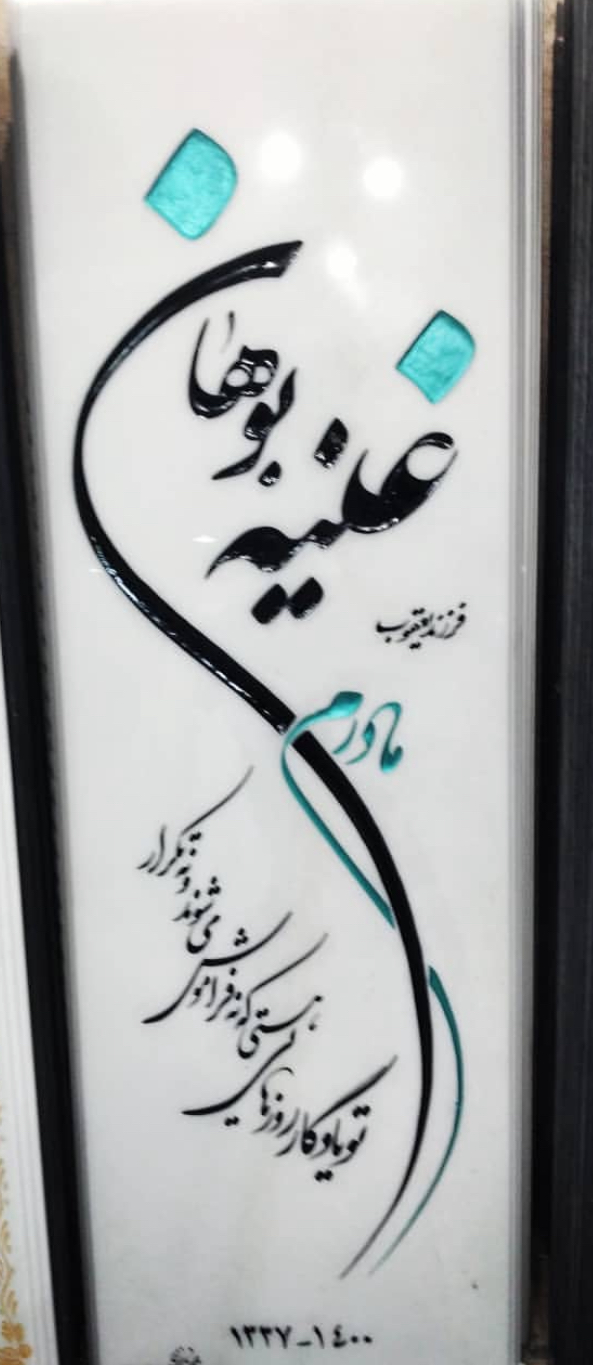 غنیه بوهان
فرزند یعقوب
مادرم
تو یادگار روزهایی
هستی که نه فراموش
می شوند و نه تکرار
۱۳۳۷-۱۴۰۰